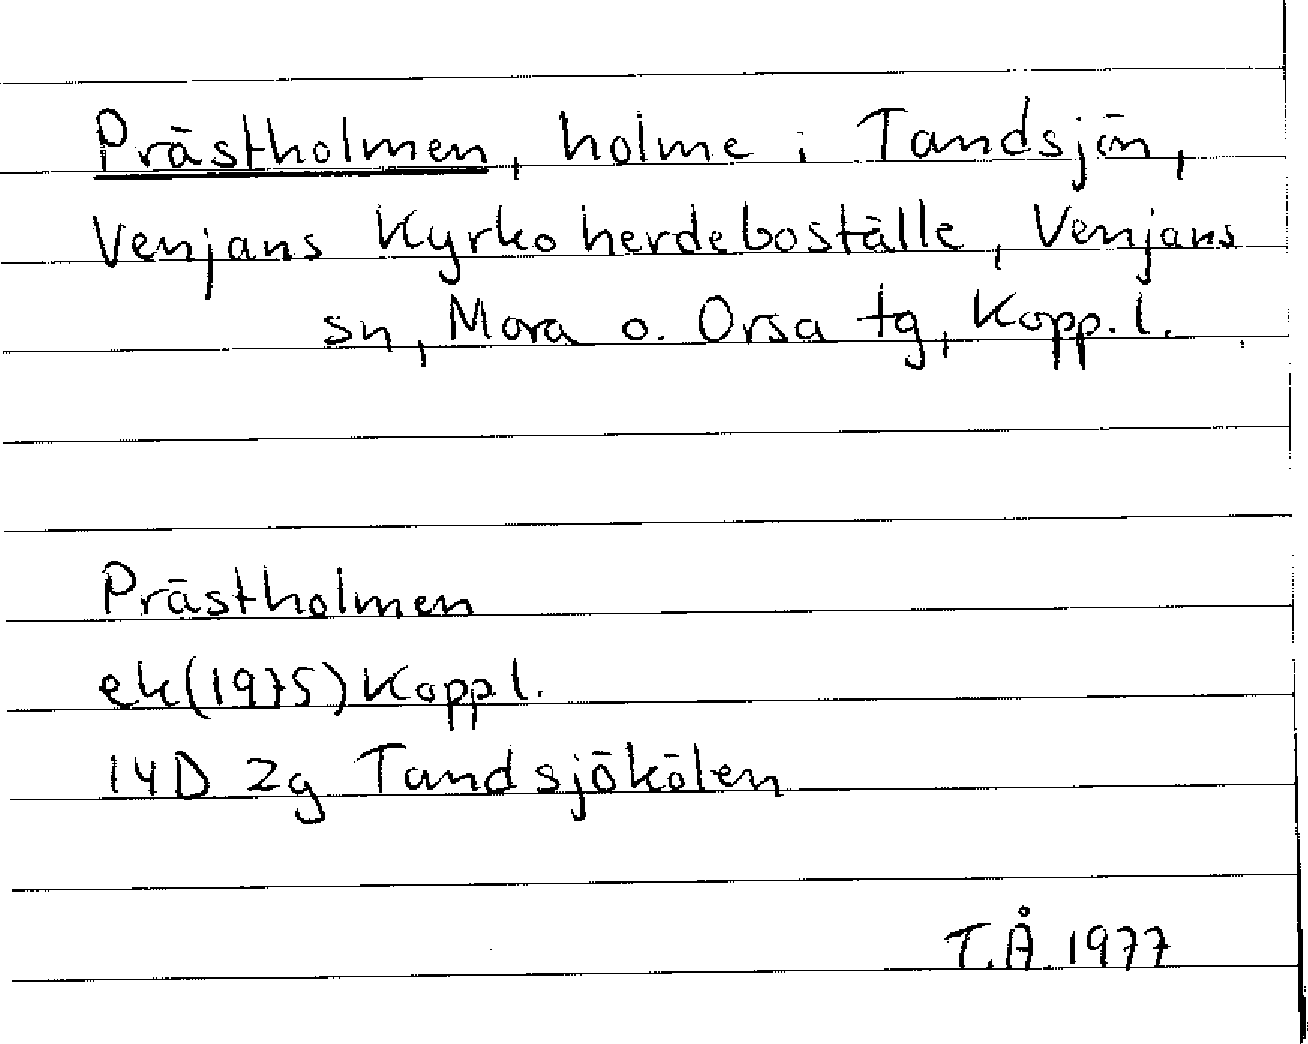 Prästholmen, holme i Tandsjön,
Venjans Kyrkoherdeboställe, Venjans
sn, Mora o. Orsa tg, Kopp. l.
Prästholmen
ek(1975) Kopp l.
14D 2g Tandsjökölen
T.Å. 1977